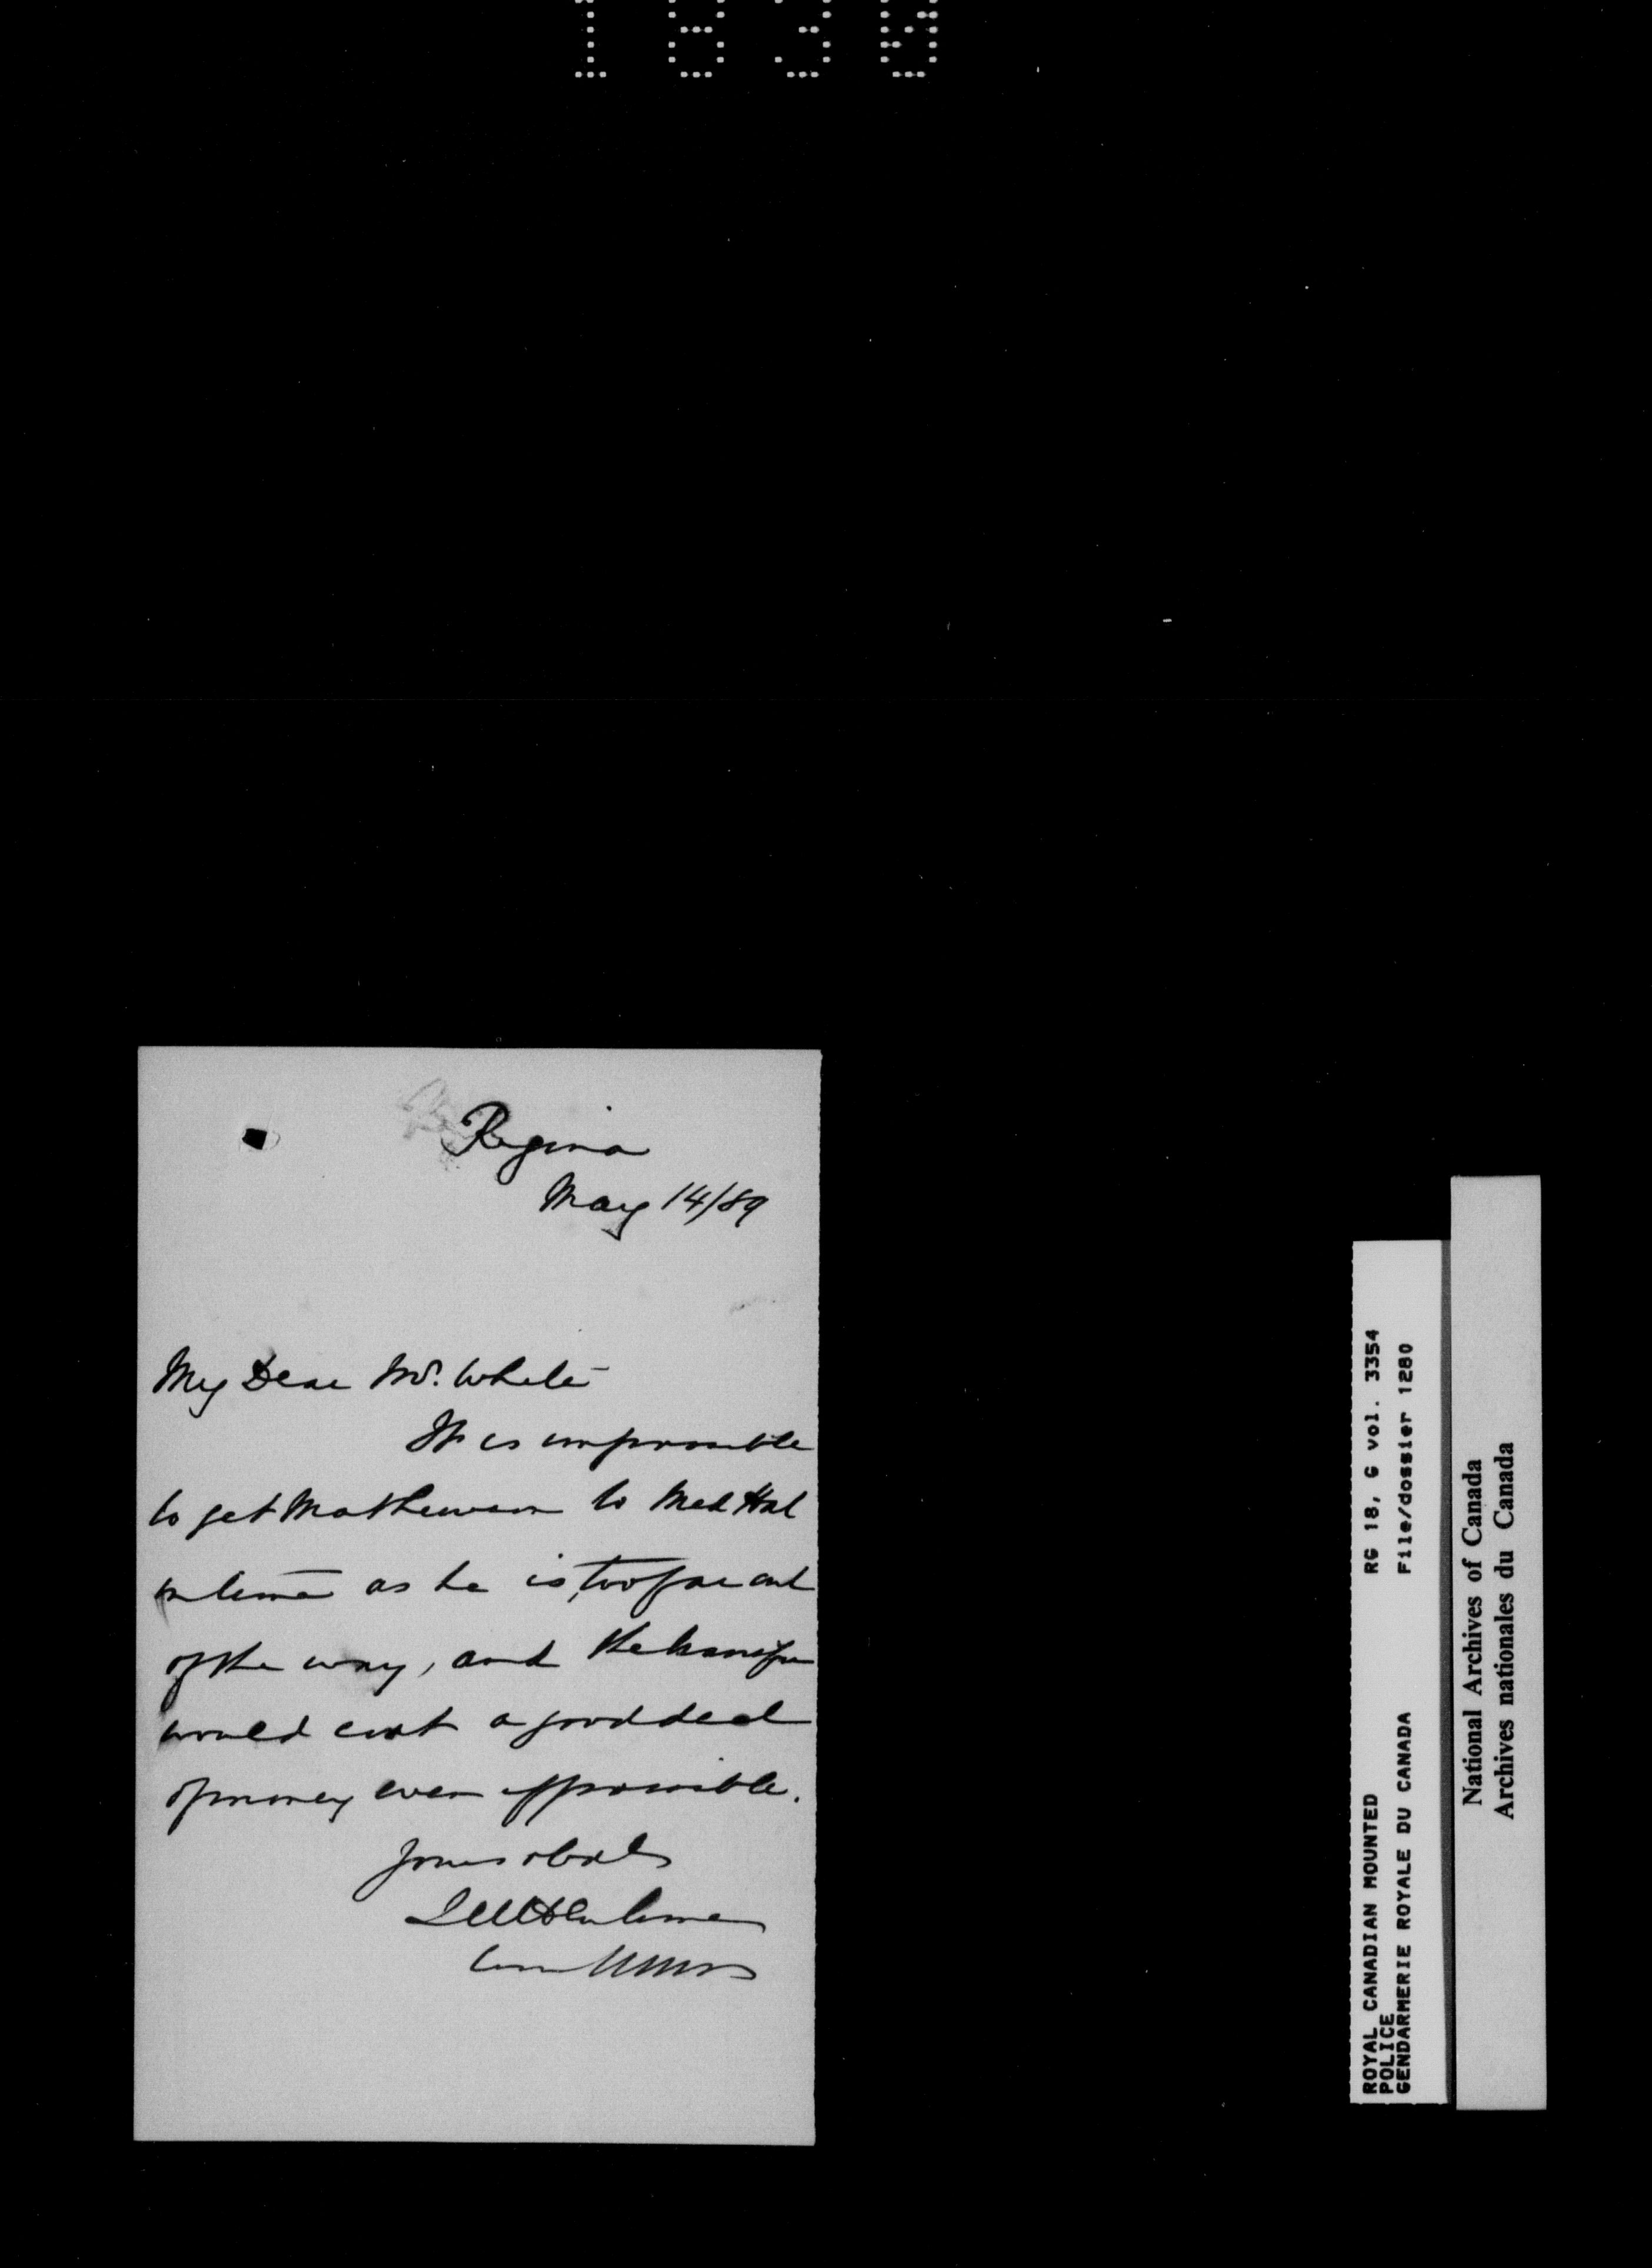 1830
Regina
May 14/89
My Dear Mr. White
It is impossible
to get Mathewson to Med Hat
in time as he is too far out
of the way, and the transfer
would cost a good deal
of money even if possible.
Yours
Com
ROYAL CANADIAN MOUNTED
POLICE
GENDARMERIE ROYALE DU CANADA
RG 18, G vol. 3354
File/dossier 1280
National Archives of Canada
Archives nationales du Canada